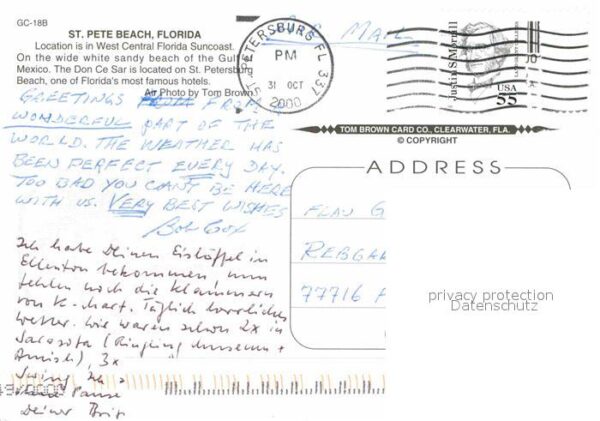 GC-18B
ST. PETE BEACH, FLORIDA
Location is in West Central Florida Suncoast.
On the wide white sandy beach of the Gulf
Mexico. The Don Ce Sar is located on St. Petersburg
Beach, one of Florida's most famous hotels.
Air Photo by Tom Brown
AIR MAIL
ST. PETERSBURG FL 337
PM
31 OCT
2000
Justin S Morrill
USA
55
TOM BROWN CARD CO., CLEARWATER, FLA.
© COPYRIGHT
GREETINGS FROM A
WONDERFUL PART OF THE
WORLD. THE WEATHER HAS
BEEN PERFECT EVERY DAY.
TOO BAD YOU CAN'T BE HERE
WITH US. VERY BEST WISHES
Bob Cox
Ich habe Deinen Eislöffel in
Ellenton bekommen nun
fehlen noch die Klammern
von K-mart. Täglich herrliches
Wetter. Wir waren schon 2x in
Sarasota (Ringling Museum +
Amish), 3x
Swing
Pause
Deiner
ADDRESS
FLAU G
REBGA
77716
privacy protection
Datenschutz